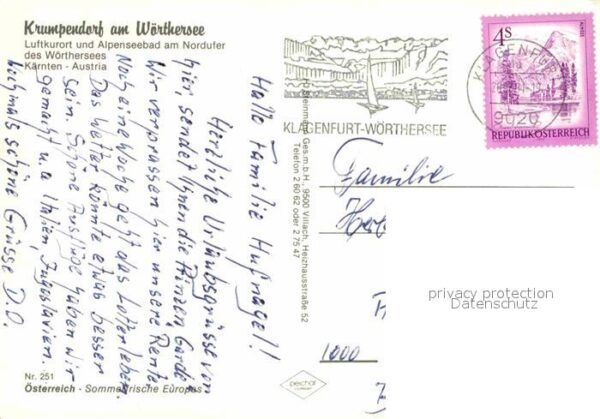 Krumpendorf am Wörthersee
Luftkurort und Alpenseebad am Nordufer
des Wörthersees
Kärnten - Austria
Hallo Familie Hufnagel!
Herzliche Urlaubsgrüsse von
hier, sendet Ihnen die Prinzen Garde.
Wir verprassen hier unsere Rente
Noch eine Woche geht das Lotterleben.
Das Wetter könnte etwas besser
sein. Schöne Ausflüge haben wir
gemacht u.a. Italien, Jugoslavien.
Nochmals schöne Grüsse D.O.
Nr. 251
Österreich - Sommerfrische Europas
Ges.m.b.H., 9500 Villach, Heizhausstraße 52
Telefon 2 60 62 oder 2 75 47
KLAGENFURT-WÖRTHERSEE
KLAGENFURT
9020
4S
REPUBLIK ÖSTERREICH
Familie
1000
pechal
privacy protection
Datenschutz